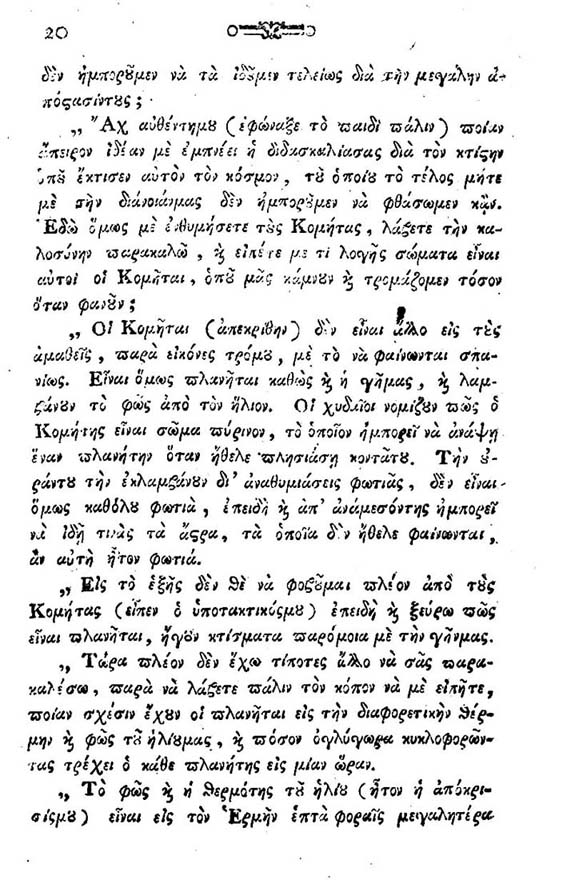 20
δὲν ἠμποροῦμεν νὰ τὰ ἰδοῦμεν τελείως διὰ τὴν μεγάλην ἀ-
πόςασίντους;
„ Ἂχ αὐθέντημου (ἐφώναξε τὸ παιδὶ πάλιν) ποίαν
ἄπειρον ἰδέαν μὲ ἐμπνέει ἡ διδασκαλίασας διὰ τὸν κτίςην
ὁποῦ ἔκτισεν αὐτὸν τὸν κόσμον, τοῦ ὁποίου τὸ τέλος μήτε
μὲ τὴν διάνοιάνμας δὲν ἠμποροῦμεν νὰ φθάσωμεν κᾂν.
Ἐδὼ ὅμως μὲ ἐνθυμήσετε τοὺς Κομήτας, λάβετε τὴν κα-
λοσύνην παρακαλῶ, ϗ εἰπέτε με τὶ λογῆς σώματα εἶναι
αὐτοὶ οἱ Κομῆται, ὁποῦ μᾶς κάμνουν ϗ τρομάζομεν τόσον
ὅταν φανοῦν;
„ Οἱ Κομῆται (ἀπεκρίθην) δὲν εἶναι ἄλλο εἰς τοὺς
ἀμαθεῖς, παρὰ εἰκόνες τρόμου, μὲ τὸ νὰ φαίνωνται σπα-
νίως. Εἶναι ὅμως πλανῆται καθὼς ϗ ἡ γῆμας, ϗ λαμ-
βάνουν τὸ φῶς ἀπὸ τὸν ἥλιον. Οἱ χυδαῖοι νομίζουν πῶς ὁ
Κομήτης εἶναι σῶμα πύρινον, τὸ ὁποῖον ἠμπορεῖ νὰ ἀνάψῃ
ἕναν πλανήτην ὅταν ἤθελε πλησιάσῃ κοντάτου. Τὴν οὐ-
ράντου τὴν ἐκλαμβάνουν δι' ἀναθυμιάσεις φωτιᾶς, δὲν εἶναι
ὅμως καθόλου φωτιὰ, ἐπειδὴ ϗ ἀπ' ἀνάμεσόντης ἠμπορεῖ
νὰ ἰδῇ τινὰς τὰ ἄςρα, τὰ ὁποῖα δὲν ἤθελε φαίνωνται,
ἂν αὐτὴ ἦτον φωτιά.
„ Εἰς τὸ ἑξῆς δὲν θὲ νὰ φοβοῦμαι πλέον ἀπὸ τοὺς
Κομήτας (εἶπεν ὁ ὑποτακτικόςμου) ἐπειδὴ ϗ ξεύρω πῶς
εἶναι πλανῆται, ἤγουν κτίσματα παρόμοια μὲ τὴν γῆνμας.
„ Τώρα πλέον δὲν ἔχω τίποτες ἄλλο νὰ σᾶς παρα-
καλέσω, παρὰ νὰ λάβετε πάλιν τὸν κόπον νὰ μὲ εἰπῆτε,
ποίαν σχέσιν ἔχουν οἱ πλανῆται εἰς τὴν διαφορετικὴν θέρ-
μην ϗ φῶς τοῦ ἡλίουμας, ϗ πόσον ὀγλύγωρα κυκλοφορῶν-
τας τρέχει ὁ κάθε πλανήτης εἰς μίαν ὥραν.
„ Τὸ φῶς ϗ ἡ θερμότης τοῦ ἡλίου (ἦτον ἡ ἀπόκρι-
σίςμου) εἶναι εἰς τὸν Ἑρμῆν ἑπτὰ φοραῖς μεγαλητέρα